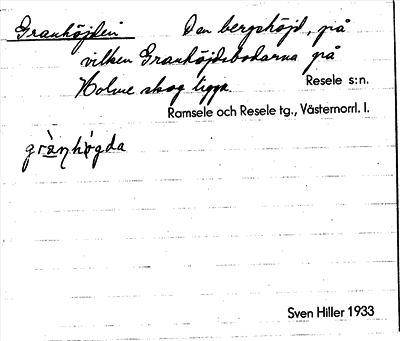 Granhöjden Den bergshöjd, på
vilken Granhöjdsbodarna på
Holme skog ligga. Resele s:n.
Ramsele och Resele tg., Västernorrl. l.
grànhø̀gda
Sven Hiller 1933